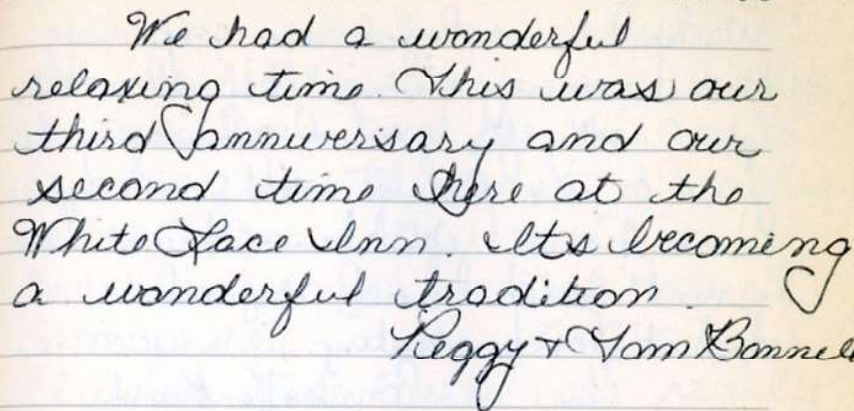 We had a wonderful
relaxing time. This was our
third anniversary and our
second time here at the
White Lace Inn. Its becoming
a wonderful tradition.
Peggy + Tom